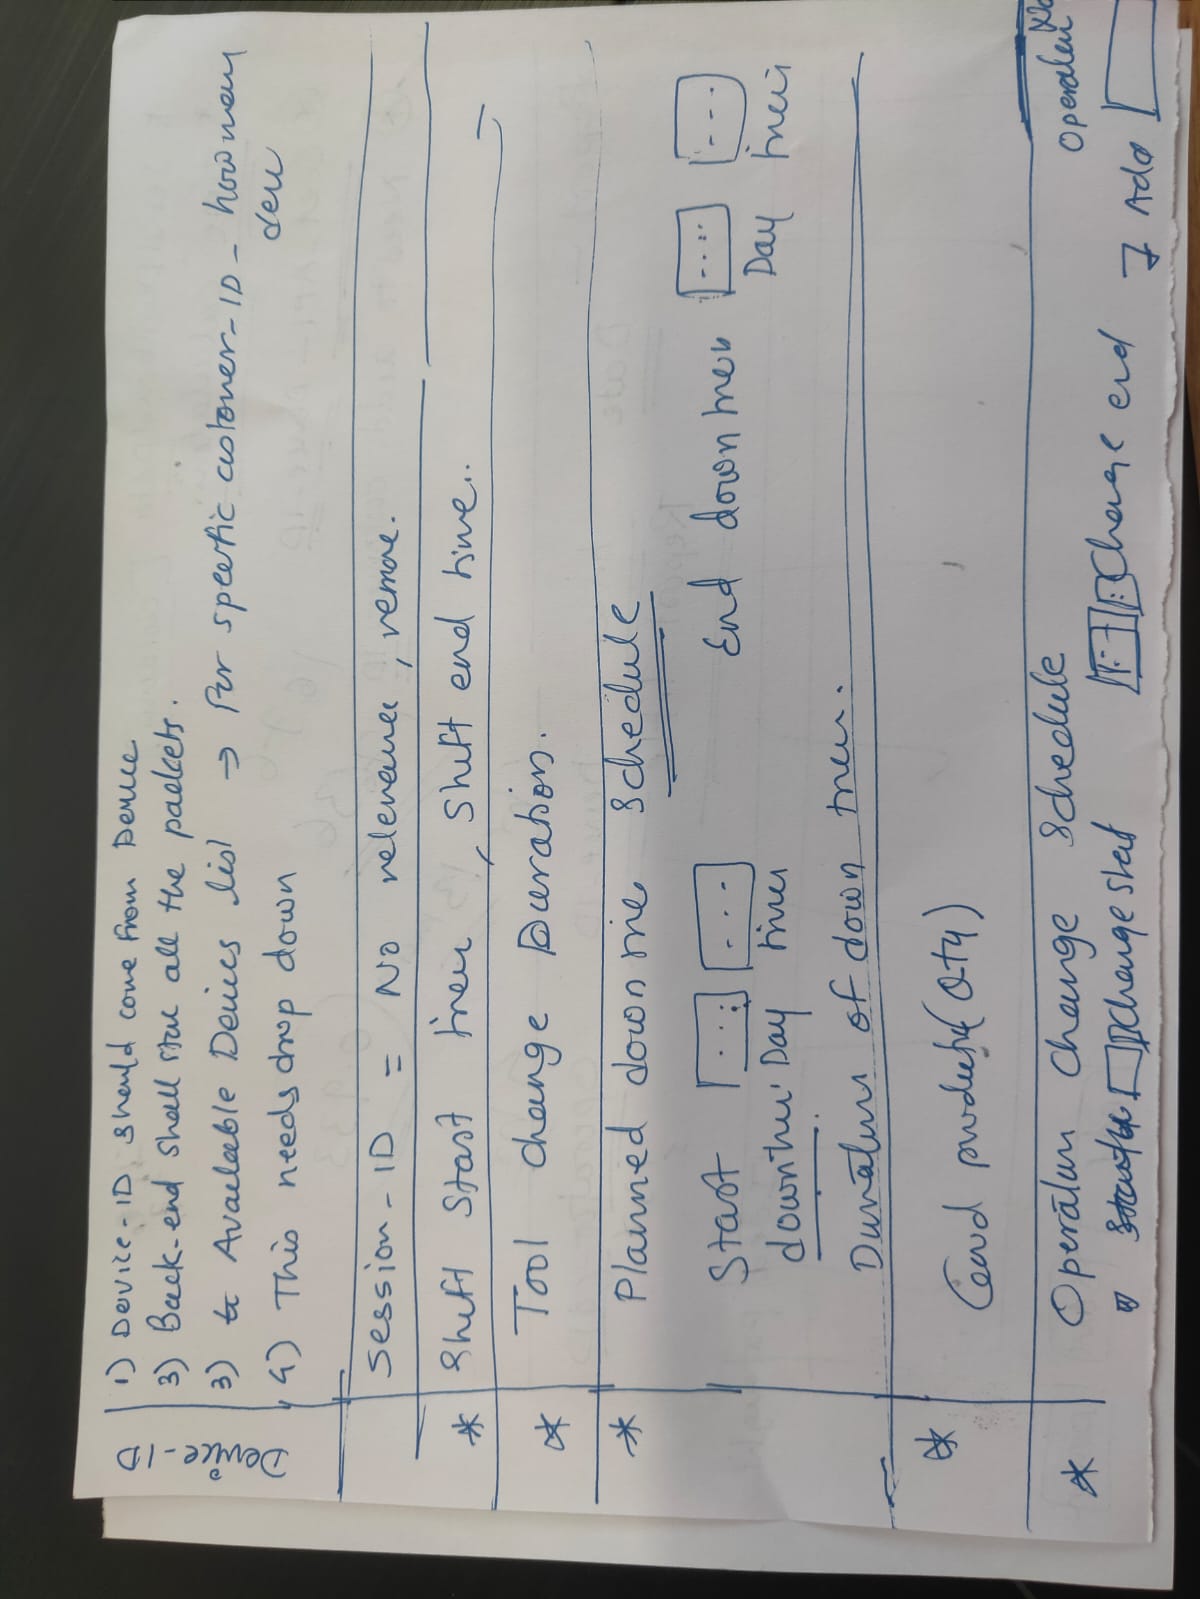 Device-ID
1) Device-ID should come from Device
3) Back-end shall store all the packets.
3) Available Devices list → For specific customer-ID - how many
4) This needs drop down
Session-ID = No relevance, remove.
* Shift Start time, Shift end time..
* Tool change Duration.
* Planned down time Schedule
Start downtime Day time End down time Day time
Duration of down time.
* Good product (Qty)
* Operator Change Schedule Operator
Change start Change end → Add